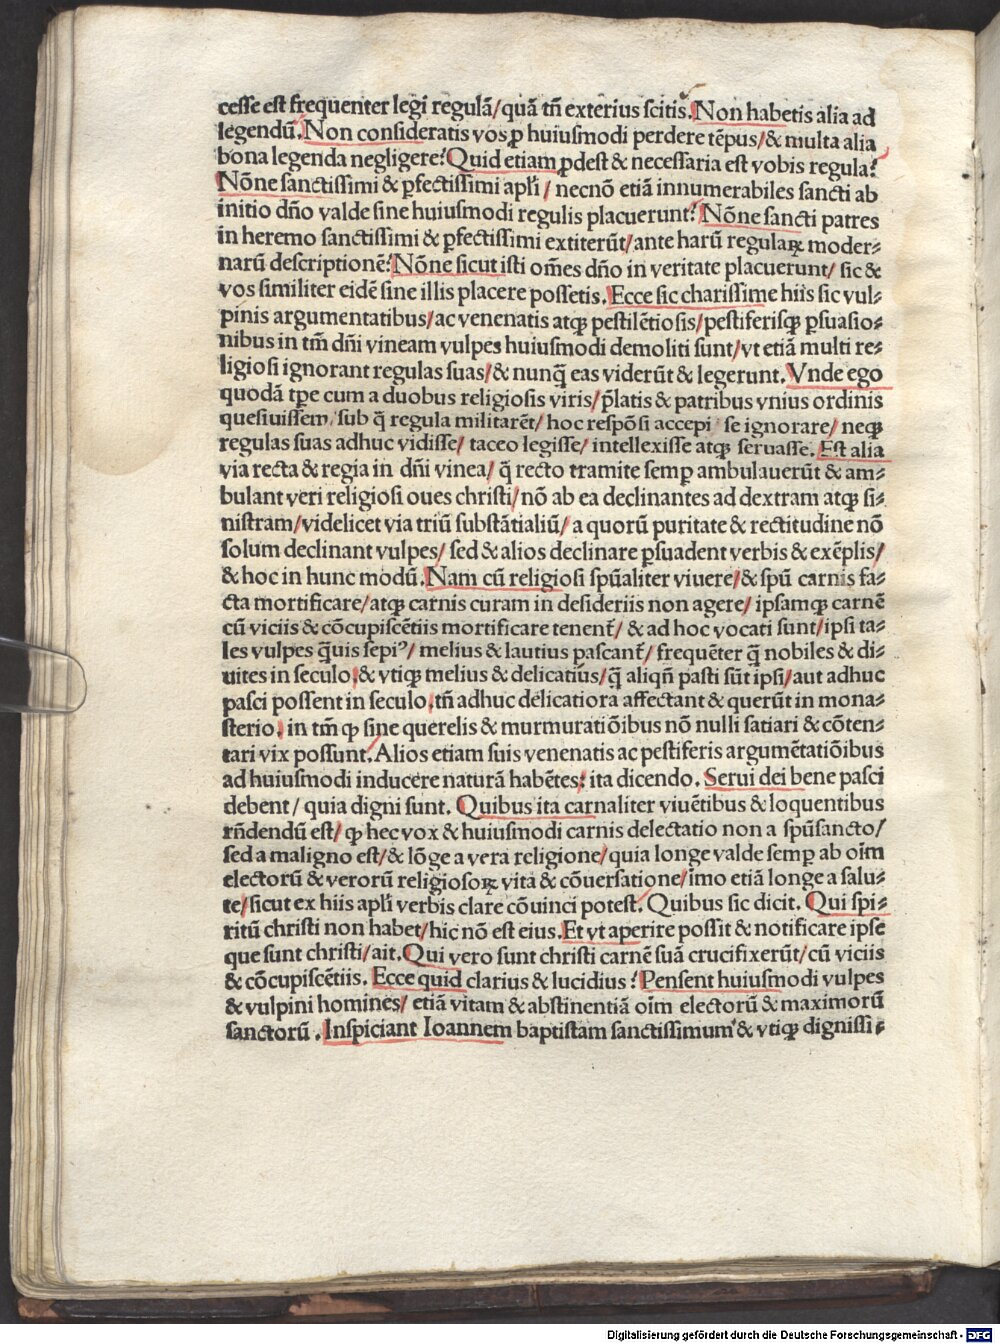 cesse est frequenter legi regulā/quā tñ exterius scitis. Non habetis alia ad
legendū. Non consideratis vos ꝑ huiusmodi perdere tēpus/& multa alia
bona legenda negligere? Quid etiam ꝓdest & necessaria est vobis regula?
Nōne sanctissimi & ꝑfectissimi apl̄i/ necnō etiā innumerabiles sancti ab
initio dño valde sine huiusmodi regulis placuerunt? Nōne sancti patres
in heremo sanctissimi & ꝑfectissimi extiterūt/ante harū regulaꝝ moder⸗
narū descriptionē? Nōne sicut isti om̄es dño in veritate placuerunt/ sic &
vos similiter eidē sine illis placere possetis. Ecce sic charissime hiis sic vul⸗
pinis argumentatibus/ac venenatis atqꝫ pestilētiosis/pestiferisqꝫ ꝑsuasio⸗
nibus in tm̄ dñi vineam vulpes huiusmodi demoliti sunt/vt etiā multi re⸗
ligiosi ignorant regulas suas/& nunq̄ eas viderūt & legerunt. Vnde ego
quodā tꝑe cum a duobus religiosis viris/p̄latis & patribus vnius ordinis
quesiuissem/sub q̄ regula militarēt/hoc respōsi accepi se ignorare/ neqꝫ
regulas suas adhuc vidisse/ taceo legisse/ intellexisse atqꝫ seruasse. Est alia
via recta & regia in dñi vinea/ q̄ recto tramite semꝑ ambulauerūt & am⸗
bulant veri religiosi oues christi/nō ab ea declinantes ad dextram atqꝫ si⸗
nistram/videlicet via triū substātialiū/a quorū puritate & rectitudine nō
solum declinant vulpes/ sed & alios declinare ꝑsuadent verbis & exēplis/
& hoc in hunc modū. Nam cū religiosi spūaliter viuere/& spū carnis fa⸗
cta mortificare/atqꝫ carnis curam in desideriis non agere/ ipsamqꝫ carnē
cū viciis & cōcupiscētiis mortificare tenent̄/ & ad hoc vocati sunt/ipsi ta⸗
les vulpes q̄uis sepiꝰ/ melius & lautius pascant̄/ frequēter q̄ nobiles & di⸗
uites in seculo/& vtiqꝫ melius & delicatius/q̄ aliqñ pasti sūt ipsi/aut adhuc
pasci possent in seculo/tñ adhuc delicatiora affectant & querūt in mona⸗
sterio/ in tm̄ ꝙ sine querelis & murmuratiōibus nō nulli satiari & cōten⸗
tari vix possunt. Alios etiam suis venenatis ac pestiferis argumētatiōibus
ad huiusmodi inducere naturā habētes: ita dicendo. Serui dei bene pasci
debent/ quia digni sunt. Quibus ita carnaliter viuētibus & loquentibus
rñdendū est/ ꝙ hec vox & huiusmodi carnis delectatio non a spūsancto/
sed a maligno est/& lōge a vera religione/quia longe valde semꝑ ab oīm
electorū & verorū religiosoꝝ vita & cōuersatione/imo etiā longe a salu⸗
te/sicut ex hiis apl̄i verbis clare cōuinci potest. Quibus sic dicit. Qui spi⸗
ritū christi non habet/hic nō est eius. Et vt aperire possit & notificare ipse
que sunt christi/ait. Qui vero sunt christi carnē suā crucifixerūt/cū viciis
& cōcupiscētiis. Ecce quid clarius & lucidius? Pensent huiusmodi vulpes
& vulpini homines/ etiā vitam & abstinentiā oīm electorū & maximorū
sanctorū. Inspiciant Ioannem baptistam sanctissimum & vtiqꝫ dignissi⸗
Digitalisierung gefördert durch die Deutsche Forschungsgemeinschaft - DFG